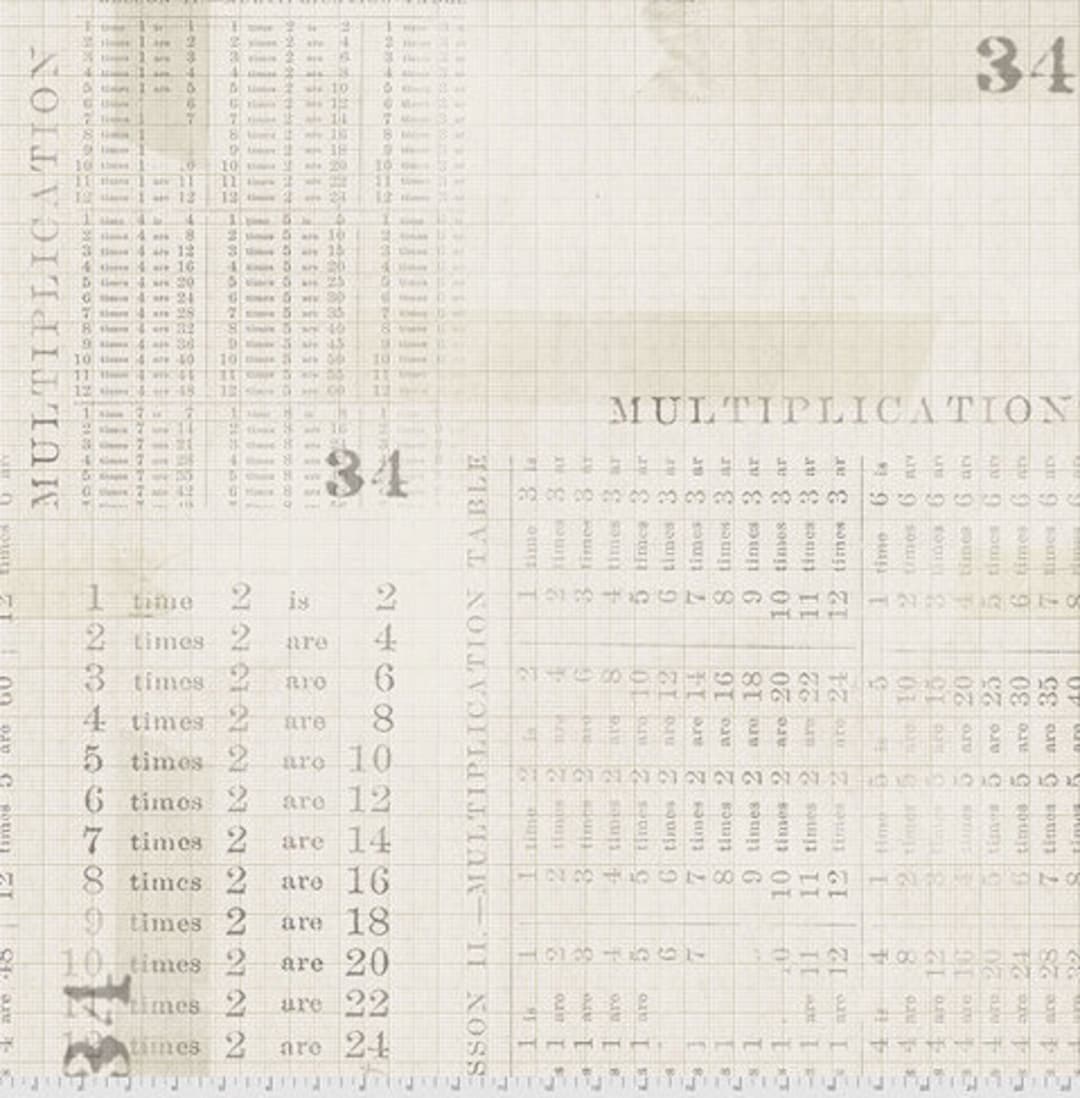 MULTIPLICATION
34
1 time 1 is 1 1 time 2 is 2 1
2 times 1 are 2 2 times 2 are 4 2
3 times 1 are 3 3 times 2 are 6 3
4 times 1 are 4 4 times 2 are 8 4
5 times 1 are 5 5 times 2 are 10 5
6 times 6 6 times 2 are 12 6
7 times 1 7 7 times 2 are 14 7
8 times 1 8 times 2 are 16 8
9 times 1 9 times 2 are 18 9
10 times 1 10 times 2 are 20 10
11 times 1 are 11 11 times 2 are 22 11
12 times 1 are 12 12 times 2 are 24 12
1 time 4 is 4 1 time 5 is 5 1
2 times 4 are 8 2 times 5 are 10 2
3 times 4 are 12 3 times 5 are 15 3
4 times 4 are 16 4 times 5 are 20 4
5 times 4 are 20 5 times 5 are 25 5
6 times 4 are 24 6 times 5 are 30 6
7 times 4 are 28 7 times 5 are 35 7
8 times 4 are 32 8 times 5 are 40 8
9 times 4 are 36 9 times 5 are 45 9
10 times 4 are 40 10 times 5 are 50 10
11 times 4 are 44 11 times 5 are 55 11
12 times 4 are 48 12 times 5 are 60 12
1 time 7 is 7 1 time 8 is 8
2 times 7 are 14 2 times 8 are 16
3 times 7 are 21 3 times 8
4 times 7 are 28 4 times 8
5 times 7 5 times 8
6 times 7 are 42 6 times 8
34
MULTIPLICATION
1 time 2 is 2
2 times 2 are 4
3 times 2 are 6
4 times 2 are 8
5 times 2 are 10
6 times 2 are 12
7 times 2 are 14
8 times 2 are 16
9 times 2 are 18
10 times 2 are 20
times 2 are 22
times 2 are 24
34
SSON II.—MULTIPLICATION TABLE
1 is 1 1 time 2 is 2 1 time 3 is
1 are 2 2 times 2 are 4 2 times 3 ar
1 are 3 3 times 2 are 6 3 times 3 ar
1 are 4 4 times 2 are 8 4 times 3 ar
1 are 5 5 times 2 are 10 5 times 3 ar
6 6 times 2 are 12 6 times 3 ar
1 7 7 times 2 are 14 7 times 3 ar
1 8 times 2 are 16 8 times 3 ar
1 9 times 2 are 18 9 times 3 ar
1 10 times 2 are 20 10 times 3 ar
1 are 11 11 times 2 are 22 11 times 3 ar
1 are 12 12 times 2 are 24 12 times 3 ar
4 is 4 1 time 5 is 5 1 time 6 is
4 are 8 2 times 5 are 10 2 times 6 ar
4 are 12 3 times 5 are 15 3 times 6 ar
4 are 16 4 times 5 are 20 4 times 6 ar
4 are 20 5 times 5 are 25 5 times 6 ar
4 are 24 6 times 5 are 30 6 times 6 ar
4 are 28 7 times 5 are 35 7 times 6 ar
4 are 32 8 times 5 are 40 8